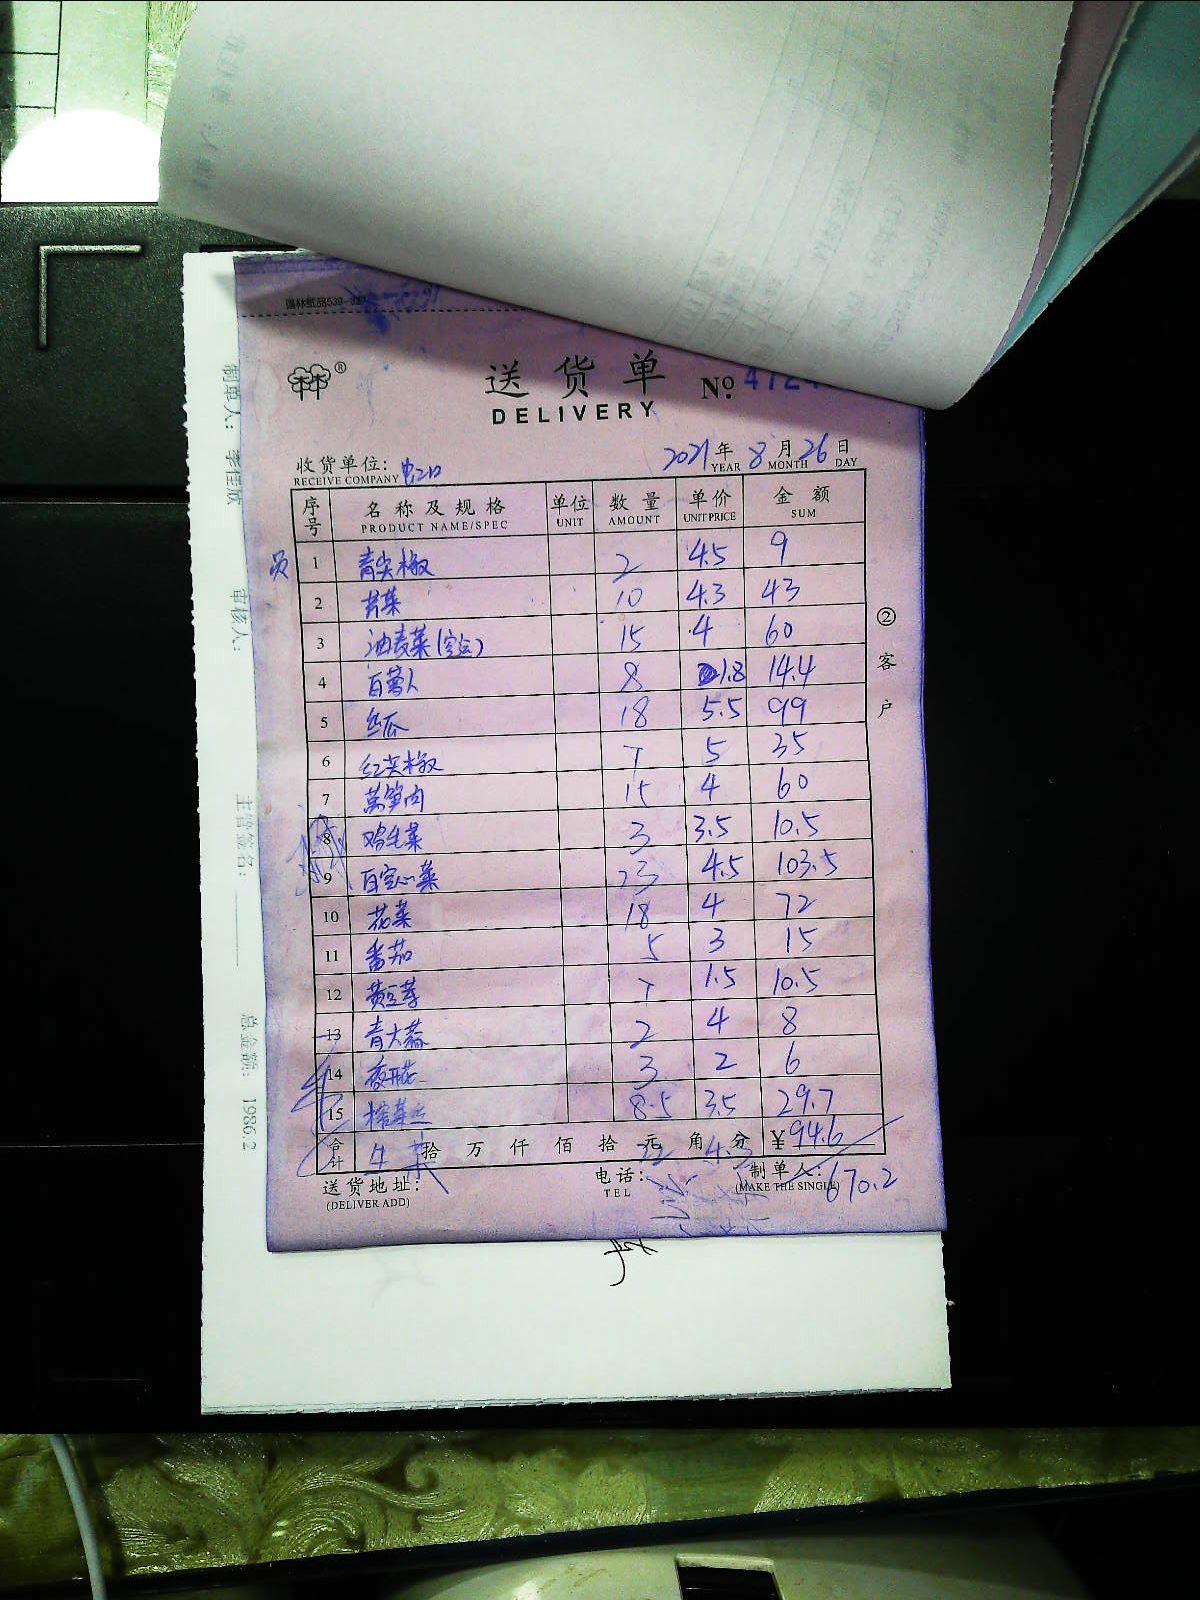 送货单 №
DELIVERY
2021年8月26日
YEAR MONTH DAY
收货单位:
RECEIVE COMPANY
序号 名称及规格 单位 数量 单价 金额
PRODUCT NAME/SPEC UNIT AMOUNT UNIT PRICE SUM
1 青尖椒 2 4.5 9
2 10 4.3 43
3 油麦菜 15 4 60
4 白萝卜 8 1.8 14.4
5 丝瓜 18 5.5 99
6 红尖椒 7 5 35
7 莴笋肉 15 4 60
8 鸡毛菜 3 3.5 10.5
9 白空心菜 23 4.5 103.5
10 花菜 18 4 72
11 番茄 5 3 15
12 黄豆芽 7 1.5 10.5
13 青大蒜 2 4 8
14 夜开花 3 2 6
15 榨菜丝 8.5 3.5 29.7
合计 拾万仟佰拾元角分 ¥94.6
670.2
送货地址:
(DELIVER ADD)
电话:
TEL
制单人:
(MAKE THE SINGLE)
②客户
制单人:
审核人:
主管签名:
总金额: 1986.2